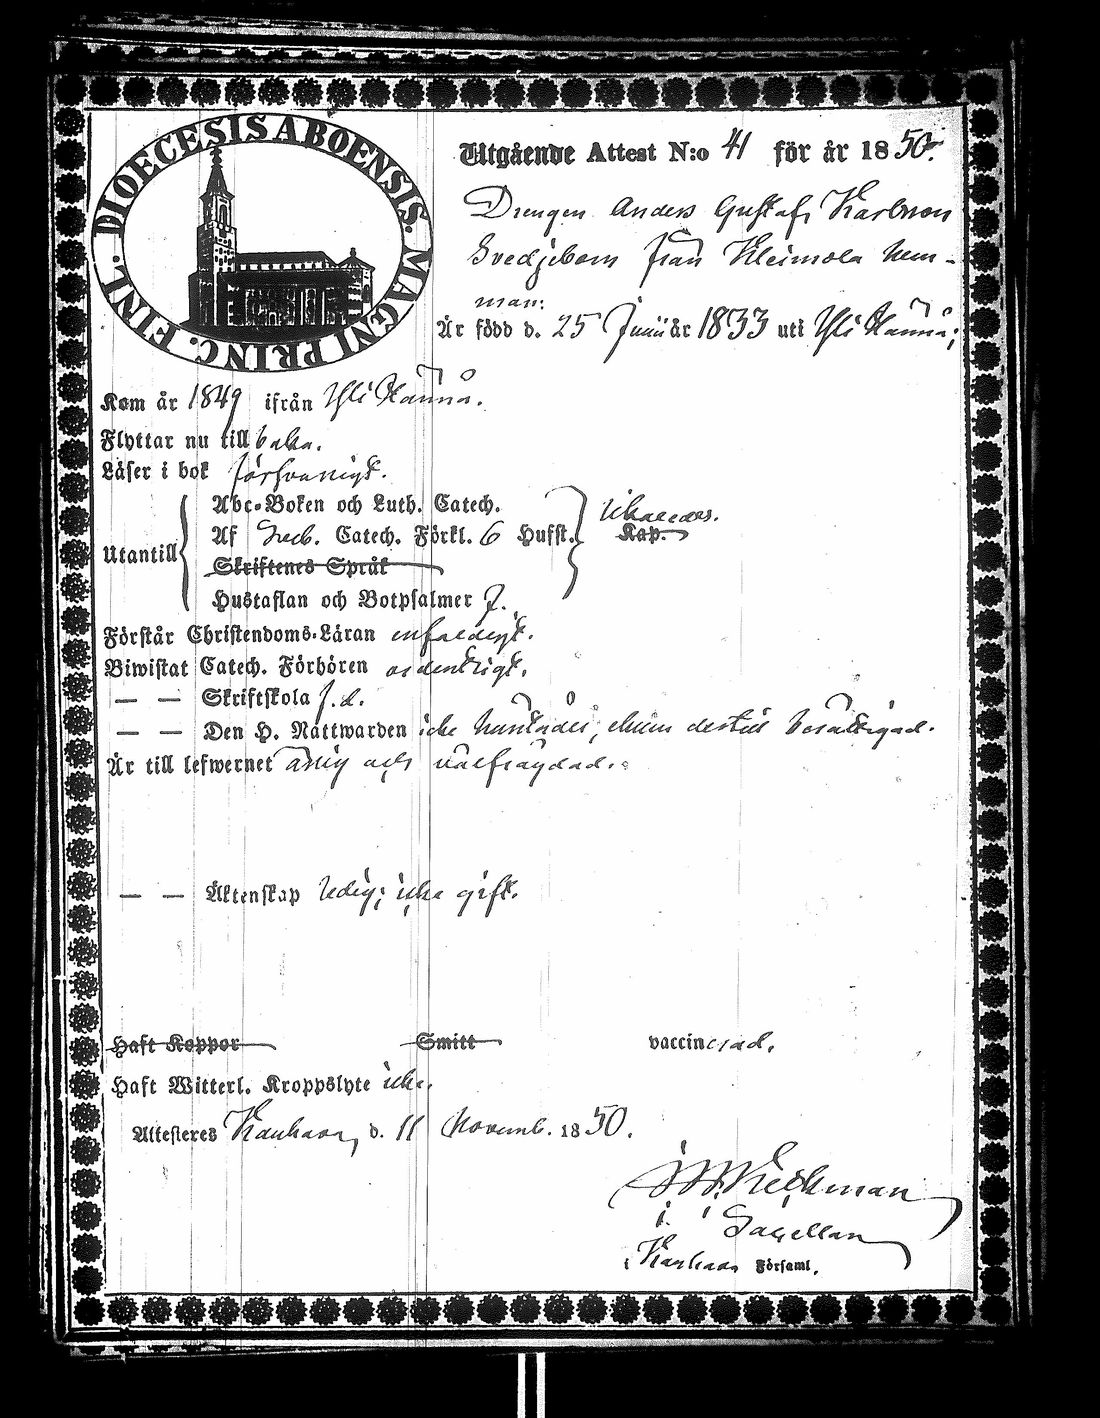 DIOECESIS ABOENSIS. MAGNI PRINC. FINL.
Utgående Attest N:o 41 för år 1850.
Drengen Anders Gustaf Karlsson
Svedjeborn från Kleimola Nem-
man:
År född d. 25 Junii år 1833 uti Yli Kannu;
Kom år 1849 ifrån Yli Kannu.
Flyttar nu till baka.
Läser i bok försvarligt.
Abc-Boken och Luth. Catech.
Af Sveb. Catech. Förkl. 6 Hufst. Kap.
Utantill
Skriftenes Språk
Hustaflan och Botpsalmer J.
Förstår Christendoms-Läran enfaldigt.
Biwistat Catech. Förhören ordentligt.
— — Skriftskola J. d.
— — Den H. Nattwarden icke ehuru dertill berättigad.
Är till lefwernet ärlig och välfrägdad.
— — Äktenskap ledig; icke gift.
Haft Koppor Smitt vaccinerad.
Haft Witterl. Kroppslyte icke.
Attesteres Kauhava, d. 11 Novemb. 1850.
Heikman
Sacellan
i Kauhava Församl.